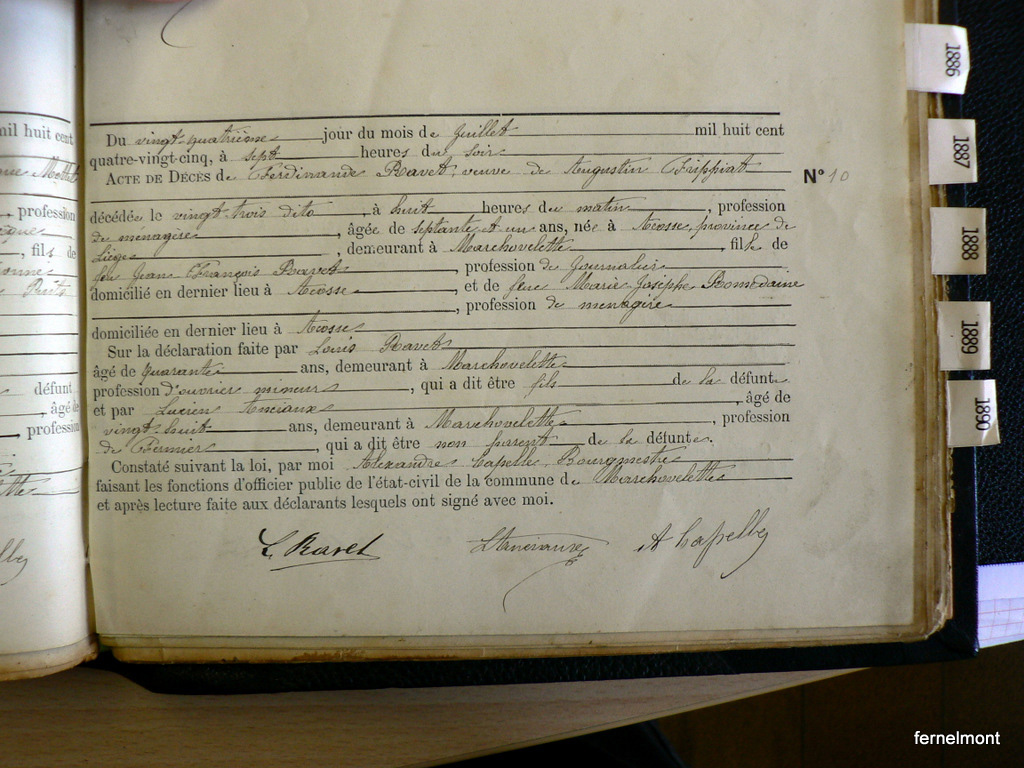 Du vingt-quatrième jour du mois de Juillet mil huit cent
quatre-vingt-cinq, à sept heures du soir
ACTE DE DÉCÈS de Ferdinande Ravet, veuve de Augustin Frippiat
N° 10
décédée le vingt trois dito, à huit heures du matin, profession
de ménagère, âgée de septante et un ans, née à Acosse, province de
Liège, demeurant à Marchovelette, fille de
feu Jean François Ravet, profession de Journalier
domicilié en dernier lieu à Acosse, et de feue Marie Josèphe
profession de ménagère
domiciliée en dernier lieu à Acosse
Sur la déclaration faite par Louis Ravet
âgé de quarante ans, demeurant à Marchovelette
profession d'ouvrier mineur, qui a dit être fils de la défunte
et par Lucien Anciaux, âgé de
vingt huit ans, demeurant à Marchovelette, profession
de Fermier, qui a dit être non parent de la défunte.
Constaté suivant la loi, par moi Alexandre Capelle, Bourgmestre
faisant les fonctions d'officier public de l'état-civil de la commune de Marchovelette
et après lecture faite aux déclarants lesquels ont signé avec moi.
L. Ravet L Anciaux A Capelle
mil huit cent
, profession
, fils de
défunt
, âgé de
, profession
1886
1887
1888
1889
1890
fernelmont